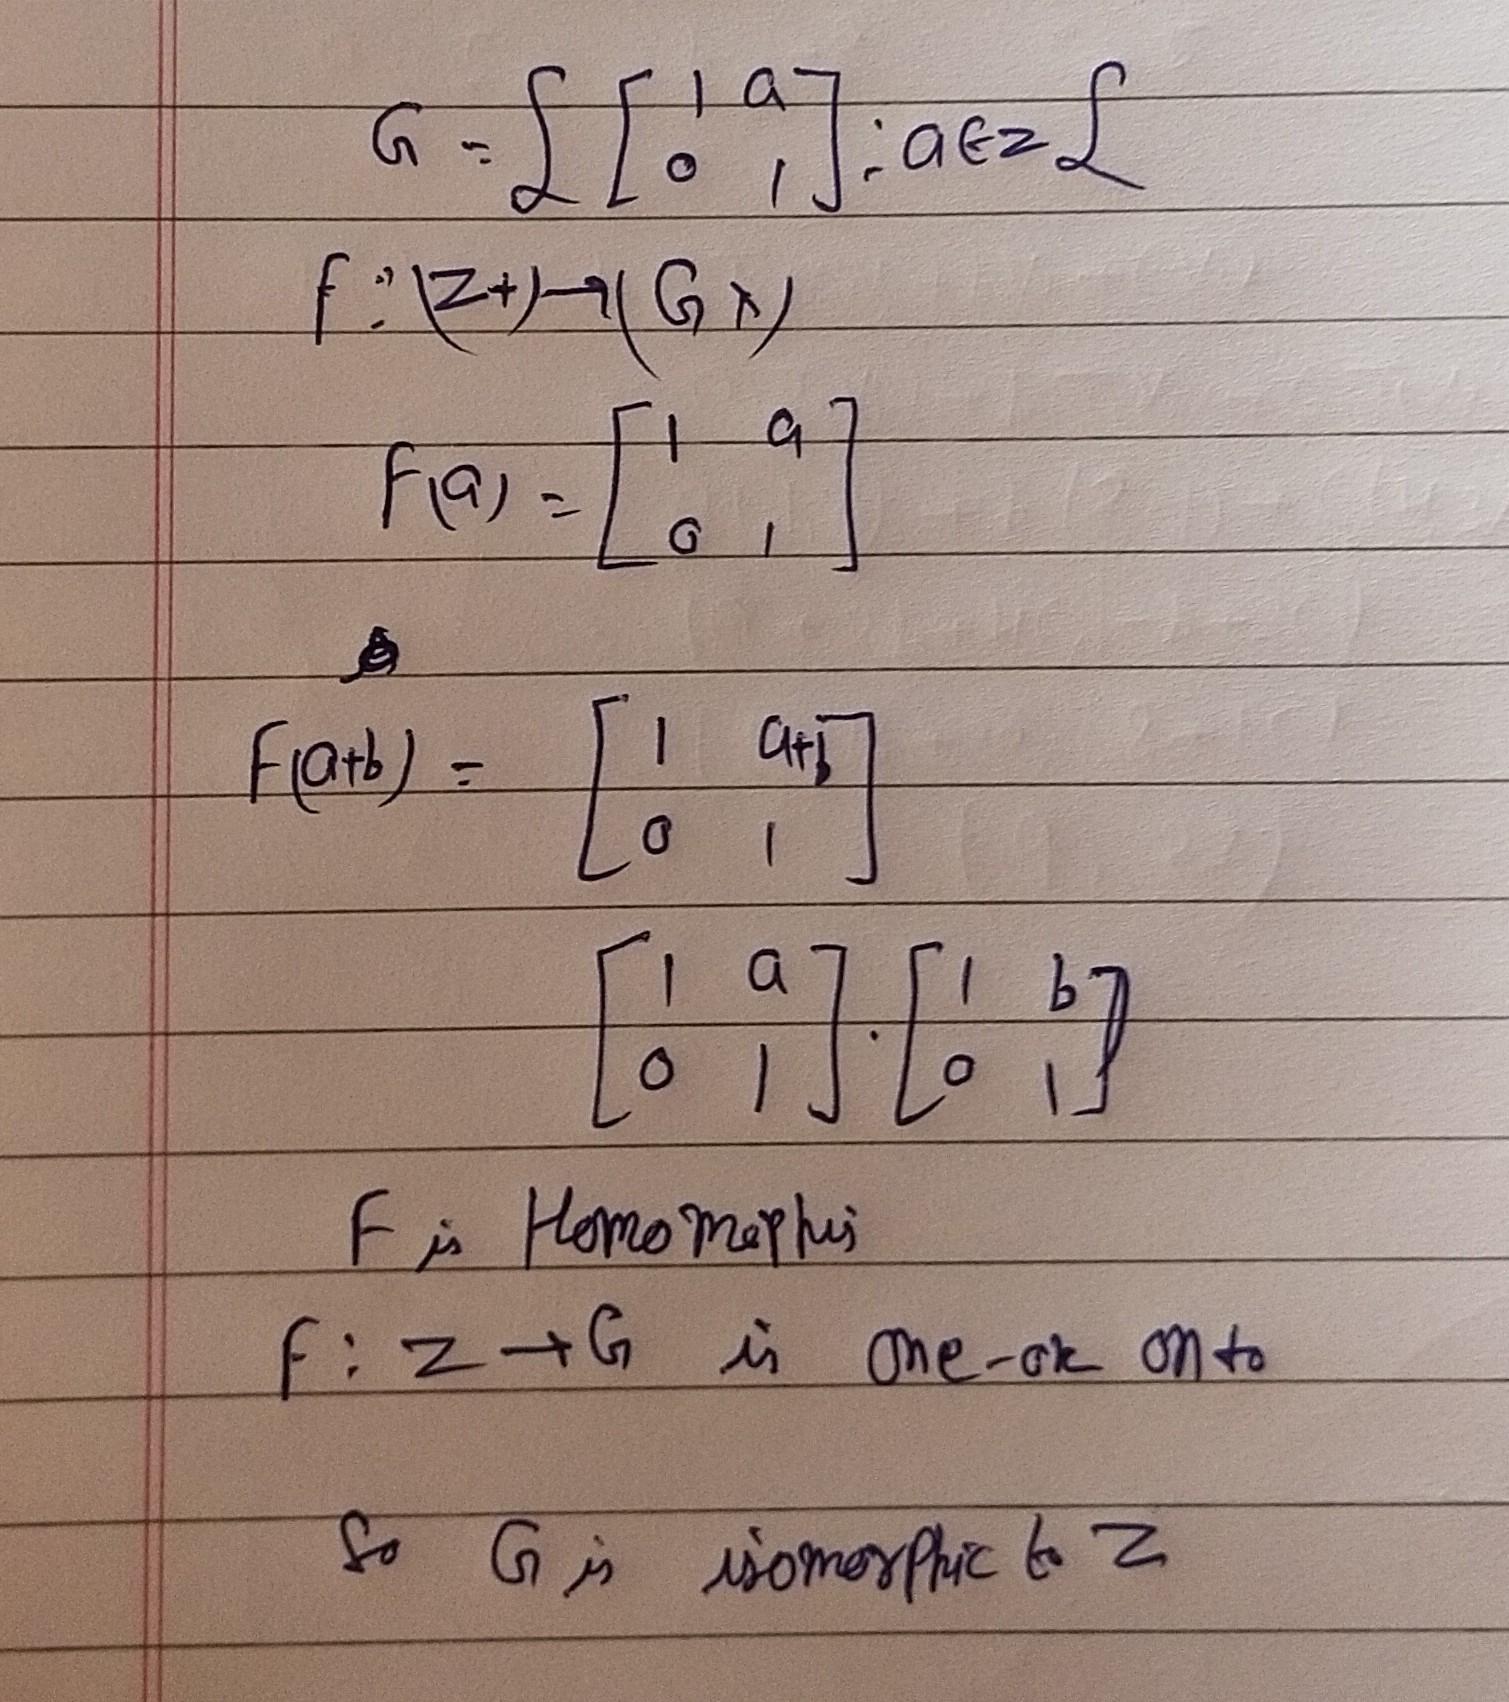 G = { [ 1 a
0 1 ] : a ∈ z {
f : (Z+) → (G x)
F(a) = [ 1 a
0 1 ]
F(a+b) = [ 1 a+b
0 1 ]
[ 1 a
0 1 ] . [ 1 b
0 1 ]
F is Homomorphis
f : Z → G is one-one onto
So G is isomorphic to Z